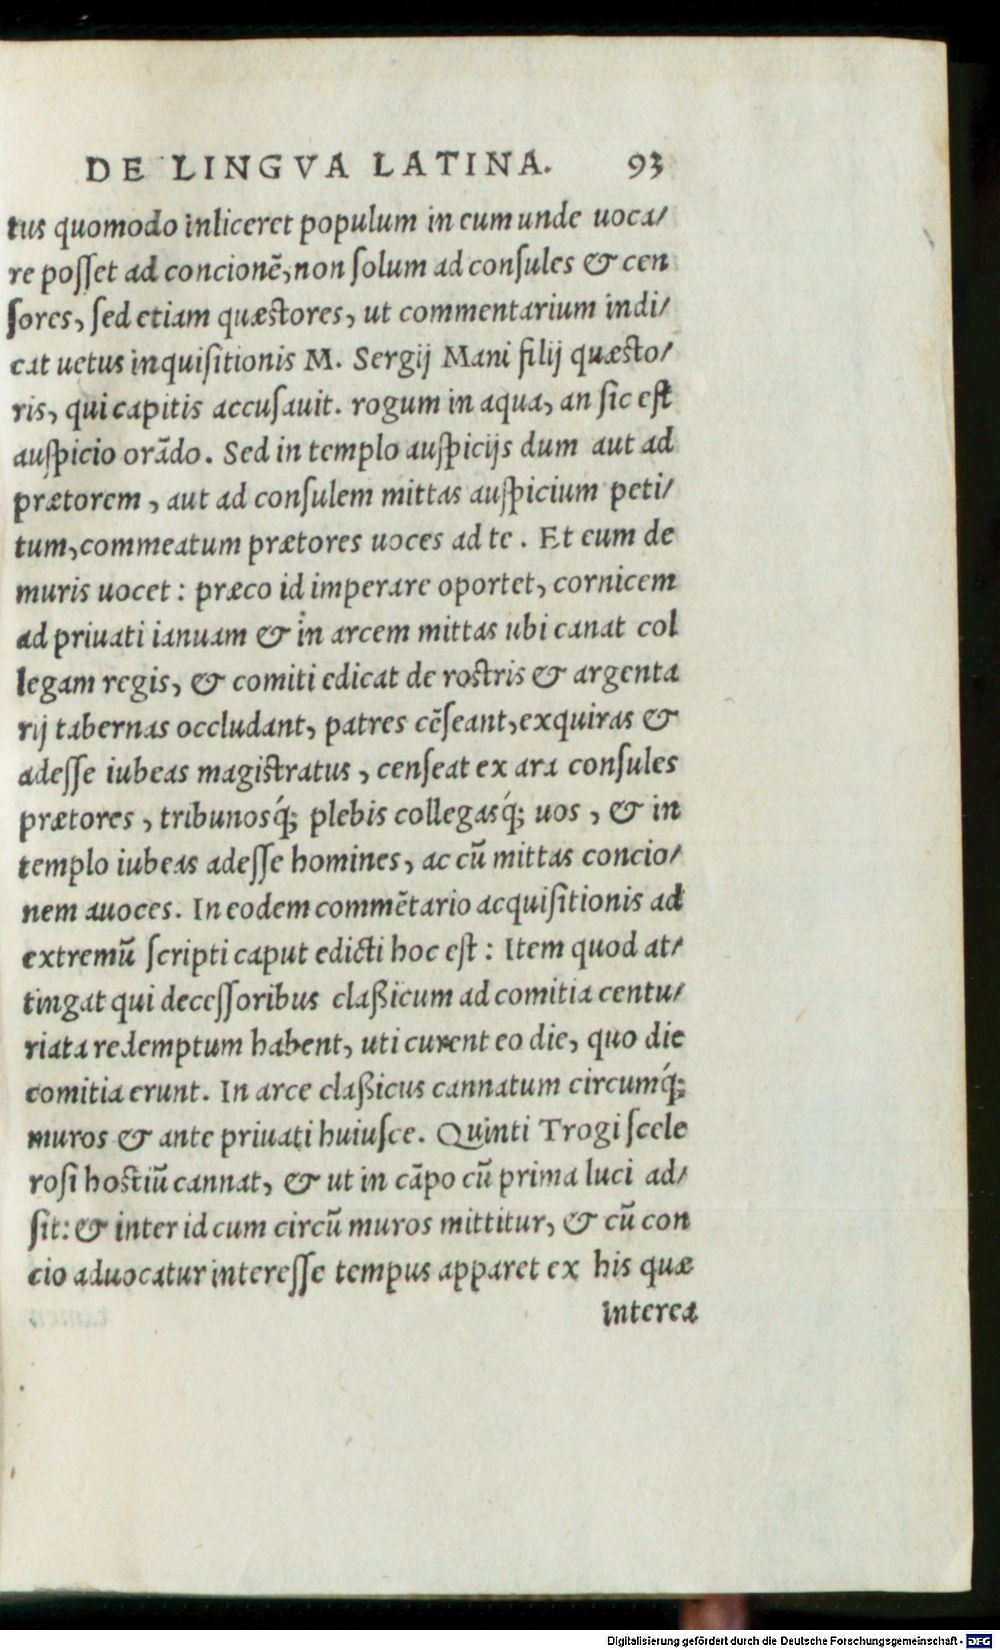 DE LINGVA LATINA. 93
tus quomodo inliceret populum in eum unde uoca/
re posset ad concionē, non solum ad consules & cen
sores, sed etiam quæstores, ut commentarium indi/
cat uetus inquisitionis M. Sergij Mani filij quæsto/
ris, qui capitis accusauit. rogum in aqua, an sic est
auspicio orādo. Sed in templo auspicijs dum aut ad
prætorem, aut ad consulem mittas auspicium peti/
tum, commeatum prætores uoces ad te. Et eum de
muris uocet: præco id imperare oportet, cornicem
ad priuati ianuam & in arcem mittas ubi canat col
legam regis, & comiti edicat de rostris & argenta
rij tabernas occludant, patres cēseant, exquiras &
adesse iubeas magistratus, censeat ex ara consules
prætores, tribunosq́; plebis collegasq́; uos, & in
templo iubeas adesse homines, ac cū mittas concio/
nem auoces. In eodem commētario acquisitionis ad
extremū scripti caput edicti hoc est: Item quod at/
tingat qui decessoribus claßicum ad comitia centu/
riata redemptum habent, uti curent eo die, quo die
comitia erunt. In arce claßicus cannatum circumq́;
muros & ante priuati huiusce. Quinti Trogi scele
rosi hostiū cannat, & ut in cāpo cū prima luci ad/
sit: & inter id cum circū muros mittitur, & cū con
cio aduocatur interesse tempus apparet ex his quæ
interea
Digitalisierung gefördert durch die Deutsche Forschungsgemeinschaft - DFG